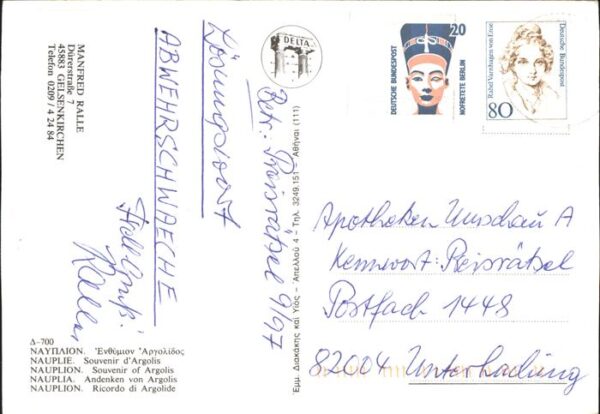 MANFRED RALLE
Dürerstraße 7
45883 GELSENKIRCHEN
Telefon 0209 / 4 24 84
Lösungswort
ABWEHRSCHWAECHE
Betr.: Preisrätsel 9/97
Ralle
Δ-700
ΝΑΥΠΛΙΟΝ. Ἐνθύμιον Ἀργολίδος
NAUPLIE. Souvenir d'Argolis
NAUPLION. Souvenir of Argolis
NAUPLIA. Andenken von Argolis
NAUPLION. Ricordo di Argolide
DELTA
Εμμ. Διακάκης και Υιός – Απελλού 4 – Τηλ. 3249.151 – Αθήναι (111)
DEUTSCHE BUNDESPOST
20
NOFRETETE BERLIN
Deutsche Bundespost
80
Rahel Varnhagen von Ense
Apotheken Umschau A
Kennwort: Preisrätsel
Postfach 1448
82004 Unterhaching